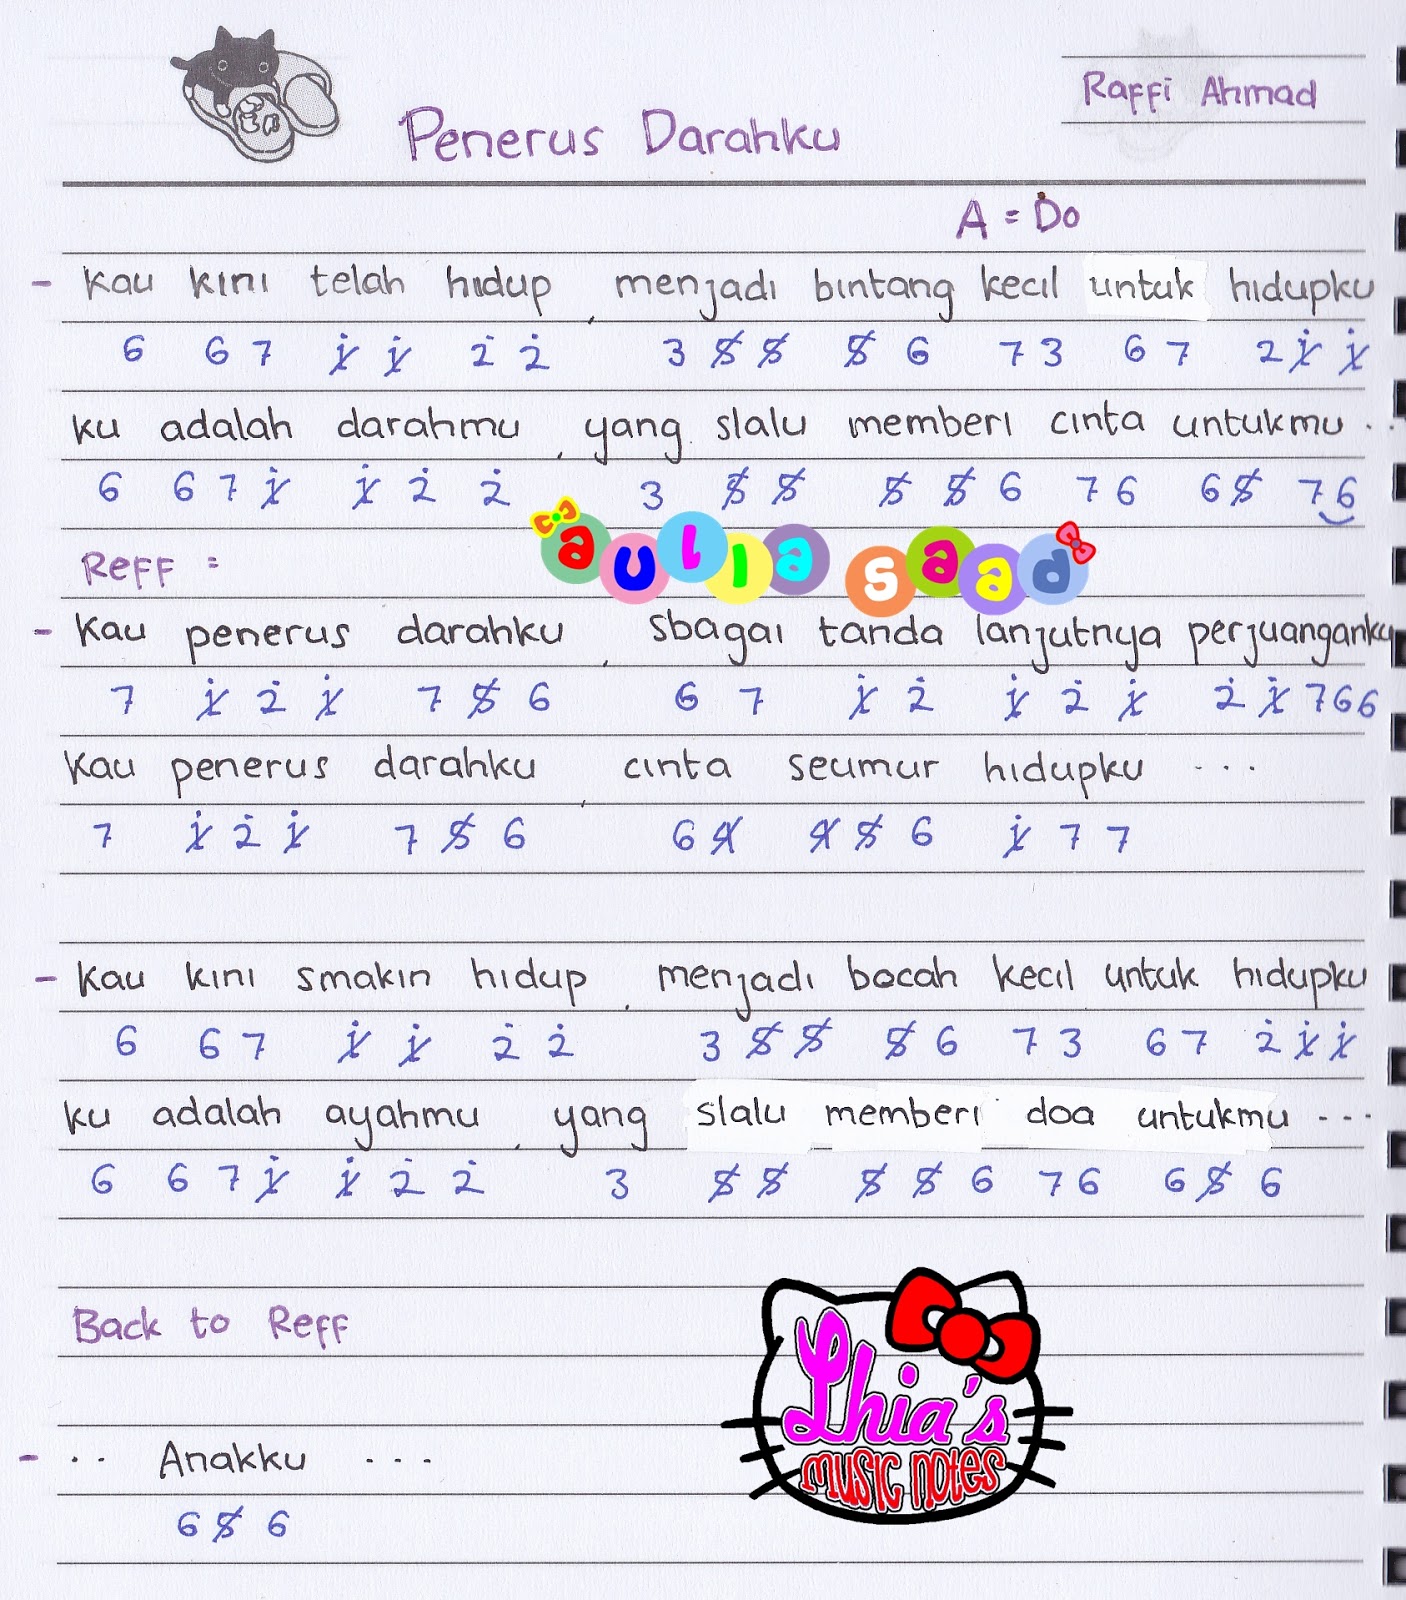 Raffi Ahmad
Penerus Darahku
A = Do
- Kau kini telah hidup, menjadi bintang kecil untuk hidupku
6 6 7 1̸̇ 1̸̇ 2̇ 2̇ 3 5̸ 5̸ 5̸ 6 7 3 6 7 2 1̸̇ 1̸̇
ku adalah darahmu, yang slalu memberi cinta untukmu ..
6 6 7 1̸̇ 1̸̇ 2̇ 2̇ 3 5̸ 5̸ 5̸ 5̸ 6 7 6 6 5̸ 7 6
aulia saad
Reff :
- Kau penerus darahku, sbagai tanda lanjutnya perjuanganku
7 1̸̇ 2̇ 1̸̇ 7 5̸ 6 6 7 1̸̇ 2̇ 1̸̇ 2̇ 1̸̇ 2̇ 1̸̇ 7 6 6
Kau penerus darahku, cinta seumur hidupku ...
7 1̸̇ 2̇ 1̸̇ 7 5̸ 6 6 4̸ 4̸ 5̸ 6 1̸̇ 7 7
- Kau kini smakin hidup, menjadi bocah kecil untuk hidupku
6 6 7 1̸̇ 1̸̇ 2̇ 2̇ 3 5̸ 5̸ 5̸ 6 7 3 6 7 2̇ 1̸̇ 1̸̇
ku adalah ayahmu, yang slalu memberi doa untukmu ...
6 6 7 1̸̇ 1̸̇ 2̇ 2̇ 3 5̸ 5̸ 5̸ 5̸ 6 7 6 6 5̸ 6
Back to Reff
- .. Anakku ...
6 5̸ 6
Lhia's
music notes